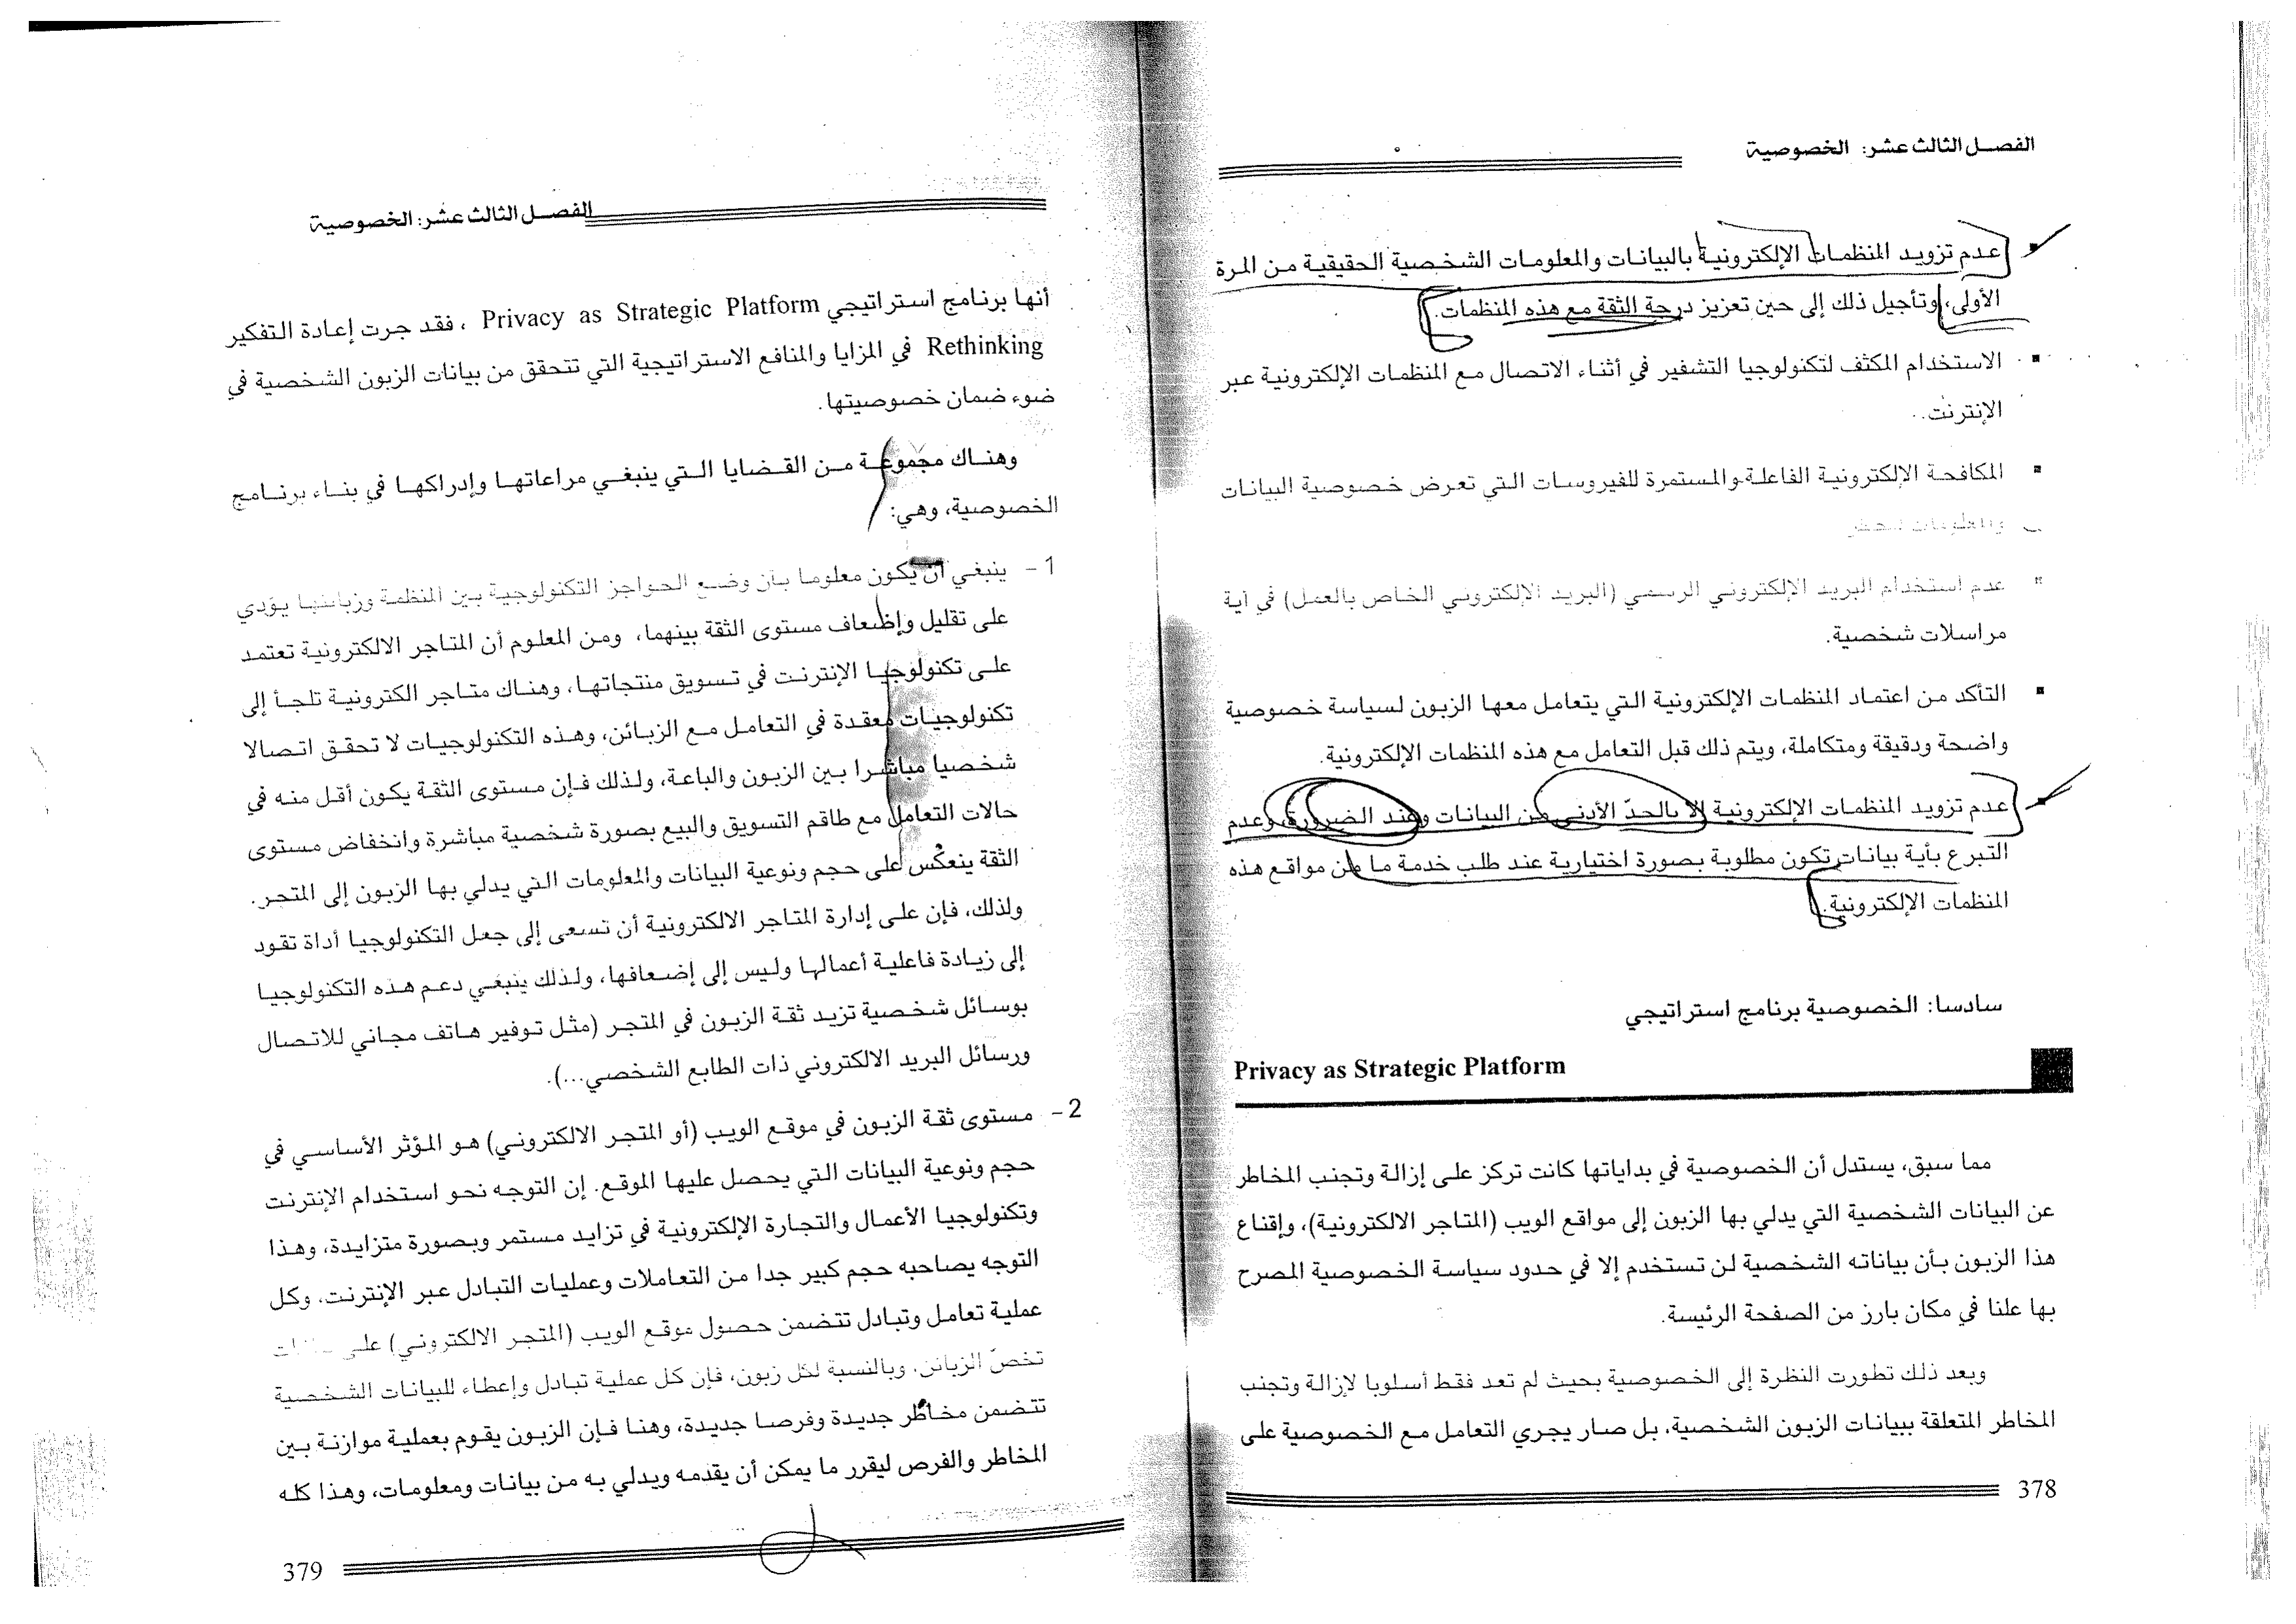 الفصل الثالث عشر: الخصوصية
▪ عدم تزويد المنظمات الإلكترونية بالبيانات والمعلومات الشخصية الحقيقية من المرة
الأولى، وتأجيل ذلك إلى حين تعزيز درجة الثقة مع هذه المنظمات.
▪ الاستخدام المكثف لتكنولوجيا التشفير في أثناء الاتصال مع المنظمات الإلكترونية عبر
الإنترنت.
▪ المكافحة الإلكترونية الفاعلة والمستمرة للفيروسات التي تعرض خصوصية البيانات
والمعلومات للخطر
▪ عدم استخدام البريد الإلكتروني الرسمي (البريد الإلكتروني الخاص بالعمل) في أية
مراسلات شخصية.
▪ التأكد من اعتماد المنظمات الإلكترونية التي يتعامل معها الزبون لسياسة خصوصية
واضحة ودقيقة ومتكاملة، ويتم ذلك قبل التعامل مع هذه المنظمات الإلكترونية.
▪ عدم تزويد المنظمات الإلكترونية إلا بالحدّ الأدنى من البيانات وعند الضرورة، وعدم
التبرع بأية بيانات تكون مطلوبة بصورة اختيارية عند طلب خدمة ما من مواقع هذه
المنظمات الإلكترونية.
سادسا: الخصوصية برنامج استراتيجي
Privacy as Strategic Platform
مما سبق، يستدل أن الخصوصية في بداياتها كانت تركز على إزالة وتجنب المخاطر
عن البيانات الشخصية التي يدلي بها الزبون إلى مواقع الويب (المتاجر الالكترونية)، وإقناع
هذا الزبون بأن بياناته الشخصية لن تستخدم إلا في حدود سياسة الخصوصية المصرح
بها علنا في مكان بارز من الصفحة الرئيسة.
وبعد ذلك تطورت النظرة إلى الخصوصية بحيث لم تعد فقط أسلوبا لإزالة وتجنب
المخاطر المتعلقة ببيانات الزبون الشخصية، بل صار يجري التعامل مع الخصوصية على
378
الفصل الثالث عشر: الخصوصية
أنها برنامج استراتيجي Privacy as Strategic Platform ، فقد جرت إعادة التفكير
Rethinking في المزايا والمنافع الاستراتيجية التي تتحقق من بيانات الزبون الشخصية في
ضوء ضمان خصوصيتها.
وهناك مجموعة من القضايا التي ينبغي مراعاتها وإدراكها في بناء برنامج
الخصوصية، وهي:
1 - ينبغي أن يكون معلوما بأن وضع الحواجز التكنولوجية بين المنظمة وزبائنها يؤدي
على تقليل وإضعاف مستوى الثقة بينهما، ومن المعلوم أن المتاجر الالكترونية تعتمد
على تكنولوجيا الإنترنت في تسويق منتجاتها، وهناك متاجر الكترونية تلجأ إلى
تكنولوجيات معقدة في التعامل مع الزبائن، وهذه التكنولوجيات لا تحقق اتصالا
شخصيا مباشرا بين الزبون والباعة، ولذلك فإن مستوى الثقة يكون أقل منه في
حالات التعامل مع طاقم التسويق والبيع بصورة شخصية مباشرة وانخفاض مستوى
الثقة ينعكس على حجم ونوعية البيانات والمعلومات التي يدلي بها الزبون إلى المتجر.
ولذلك، فإن على إدارة المتاجر الالكترونية أن تسعى إلى جعل التكنولوجيا أداة تقود
إلى زيادة فاعلية أعمالها وليس إلى إضعافها، ولذلك ينبغي دعم هذه التكنولوجيا
بوسائل شخصية تزيد ثقة الزبون في المتجر (مثل توفير هاتف مجاني للاتصال
ورسائل البريد الالكتروني ذات الطابع الشخصي...).
2 - مستوى ثقة الزبون في موقع الويب (أو المتجر الالكتروني) هو المؤثر الأساسي في
حجم ونوعية البيانات التي يحصل عليها الموقع. إن التوجه نحو استخدام الإنترنت
وتكنولوجيا الأعمال والتجارة الإلكترونية في تزايد مستمر وبصورة متزايدة، وهذا
التوجه يصاحبه حجم كبير جدا من التعاملات وعمليات التبادل عبر الإنترنت، وكل
عملية تعامل وتبادل تتضمن حصول موقع الويب (المتجر الالكتروني) على
تخصّ الزبائن. وبالنسبة لكل زبون، فإن كل عملية تبادل وإعطاء للبيانات الشخصية
تتضمن مخاطر جديدة وفرصا جديدة، وهنا فإن الزبون يقوم بعملية موازنة بين
المخاطر والفرص ليقرر ما يمكن أن يقدمه ويدلي به من بيانات ومعلومات، وهذا كله
379